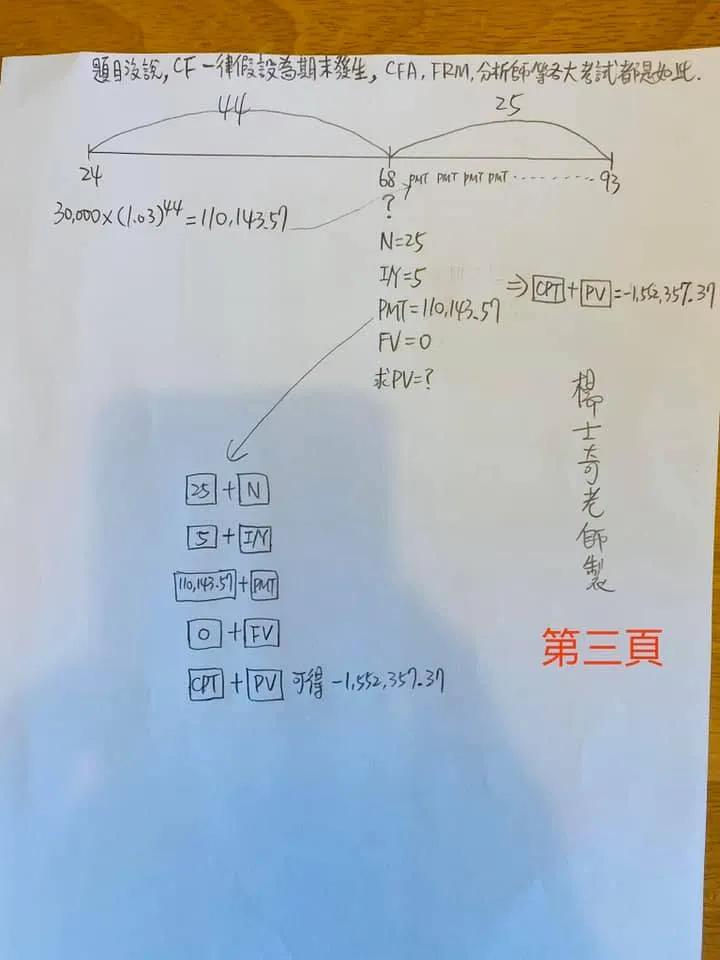 題目沒說, CF 一律假設為期末發生, CFA, FRM, 分析師等各大考試都是如此.
44
25
24
68
PMT PMT PMT PMT ........
93
30,000×(1.03)^44=110,143.57
?
N=25
I/Y=5
PMT=110,143.57
FV=0
求PV=?
⇒ CPT + PV =-1,552,357.37
25 + N
5 + I/Y
110,143.57 + PMT
0 + FV
CPT + PV 可得 -1,552,357.37
楊士奇老師製
第三頁